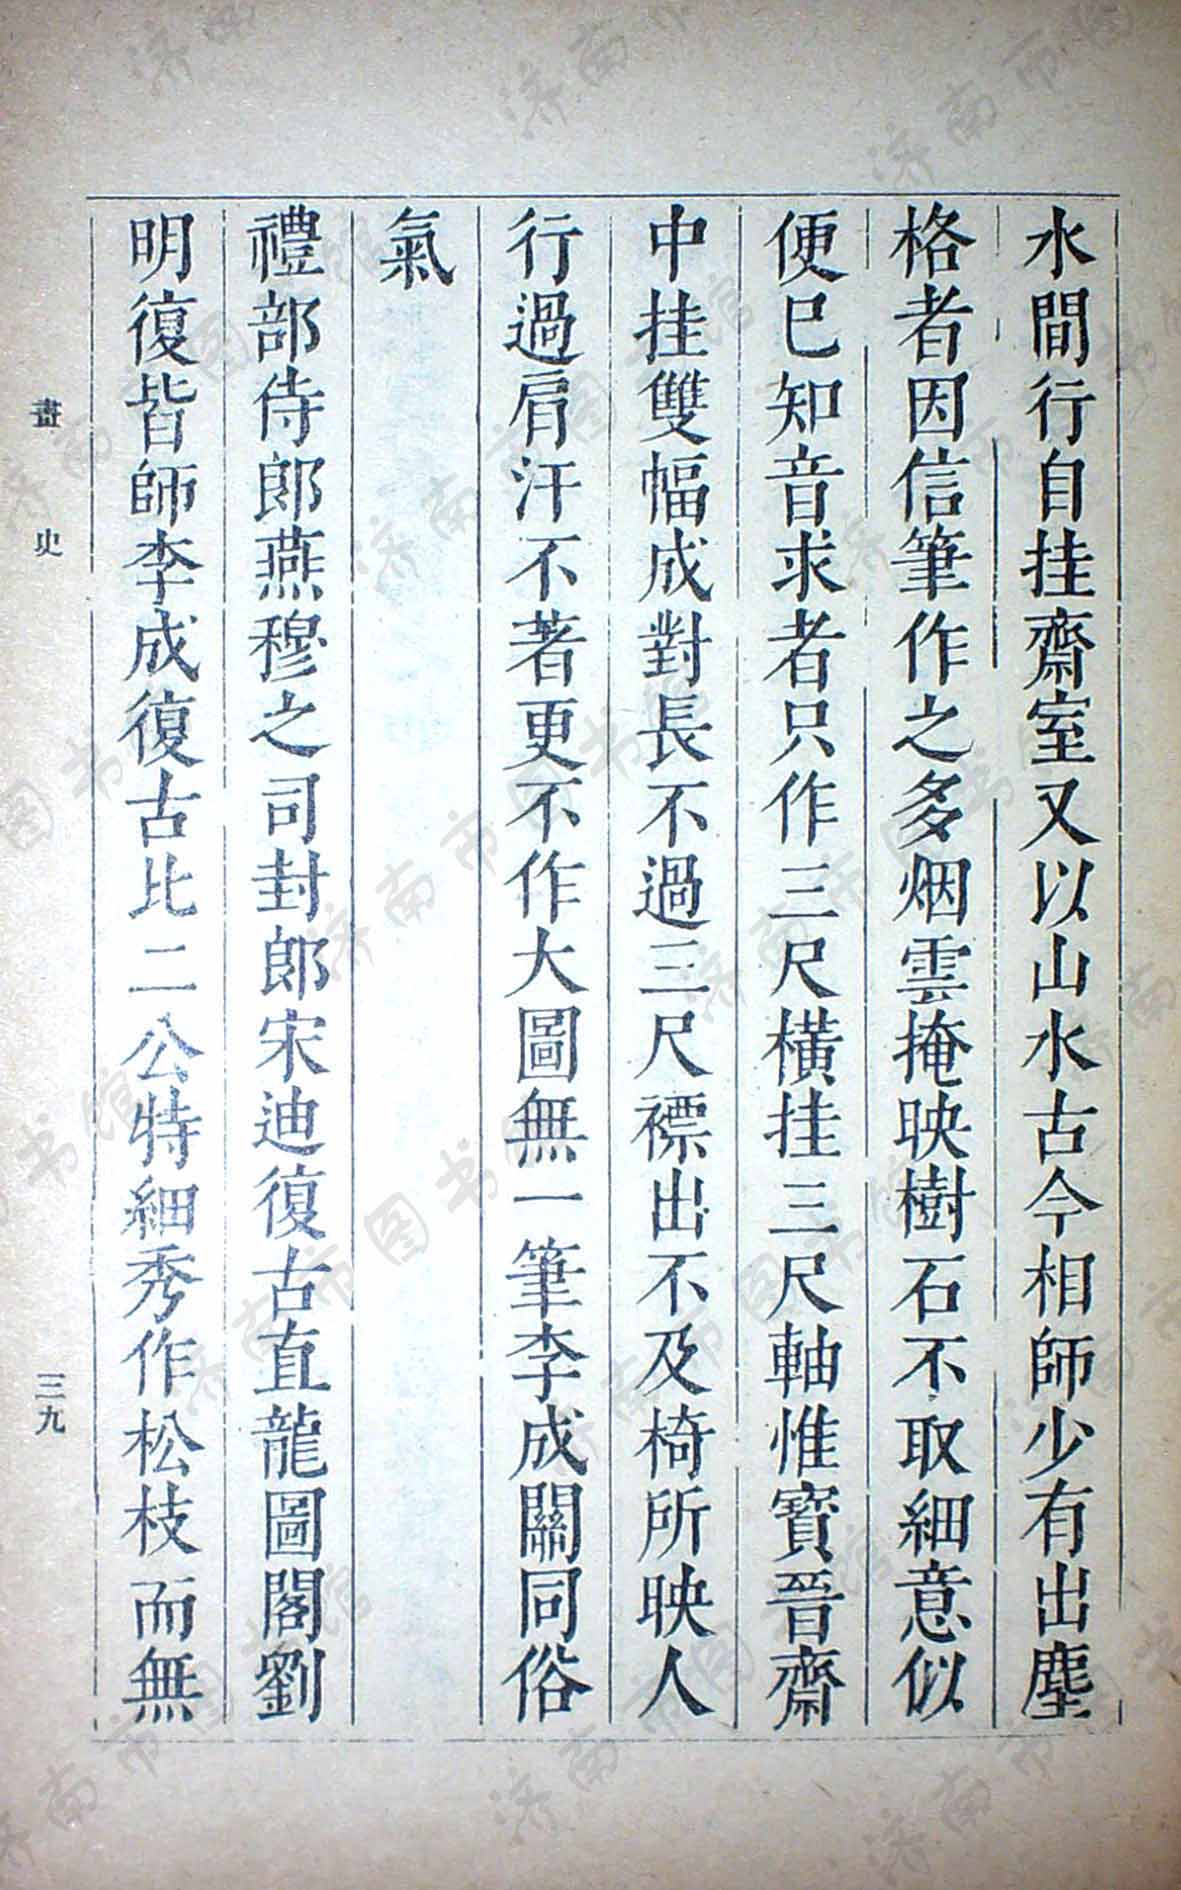 水間行自挂齋室又以山水古今相師少有出塵
格者因信筆作之多烟雲掩映樹石不取細意似
便已知音求者只作三尺橫挂三尺軸惟寶晉齋
中挂雙幅成對長不過三尺褾出不及椅所映人
行過肩汗不著更不作大圖無一筆李成關同俗
氣
禮部侍郎燕穆之司封郎宋迪復古直龍圖閣劉
明復皆師李成復古比二公特細秀作松枝而無
畫史
三九
济南市图书馆